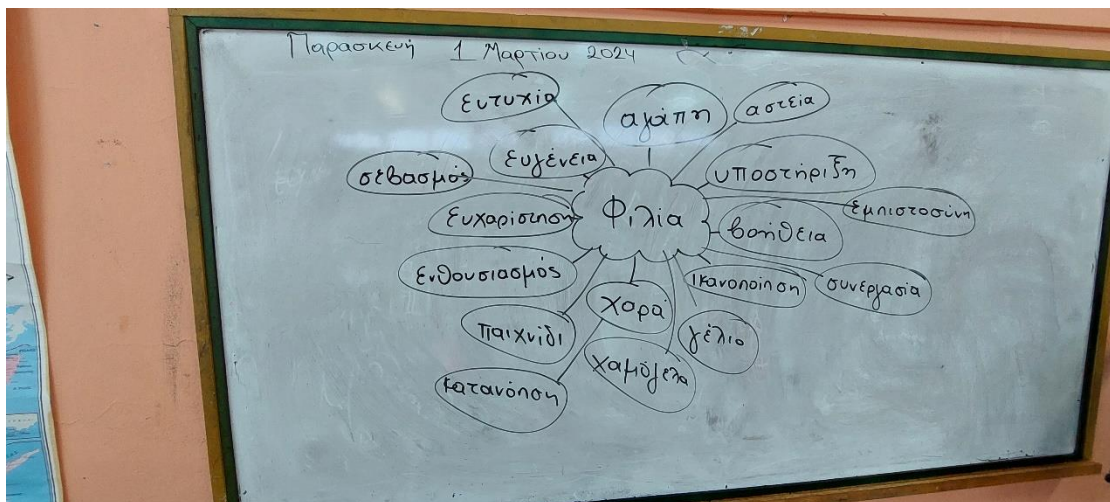 Παρασκευή 1 Μαρτίου 2024
ευτυχία
αγάπη
αστεία
ευγένεια
υποστήριξη
σεβασμός
εμπιστοσύνη
ευχαρίστηση
Φιλία
βοήθεια
ενθουσιασμός
ικανοποίηση
συνεργασία
χαρά
παιχνίδι
γέλιο
χαμόγελα
κατανόηση